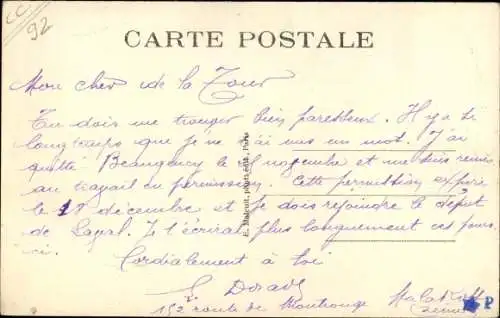 CC
92
CARTE POSTALE
Mon cher de la Tour
Tu dois me trouver bien paresseux. Il y a si
longtemps que je ne t'ai mis un mot. J'ai
quitté Beaugency le novembre et me suis remis
au travail en permission. Cette permission expire
le 18 décembre et je dois rejoindre le dépôt
de Laval. Je t'écrirai plus longuement ces jours
ici.
Cordialement à toi
152 route de Montrouge Malakoff
Seine
E. Malcuit, phot. édit., Paris
P